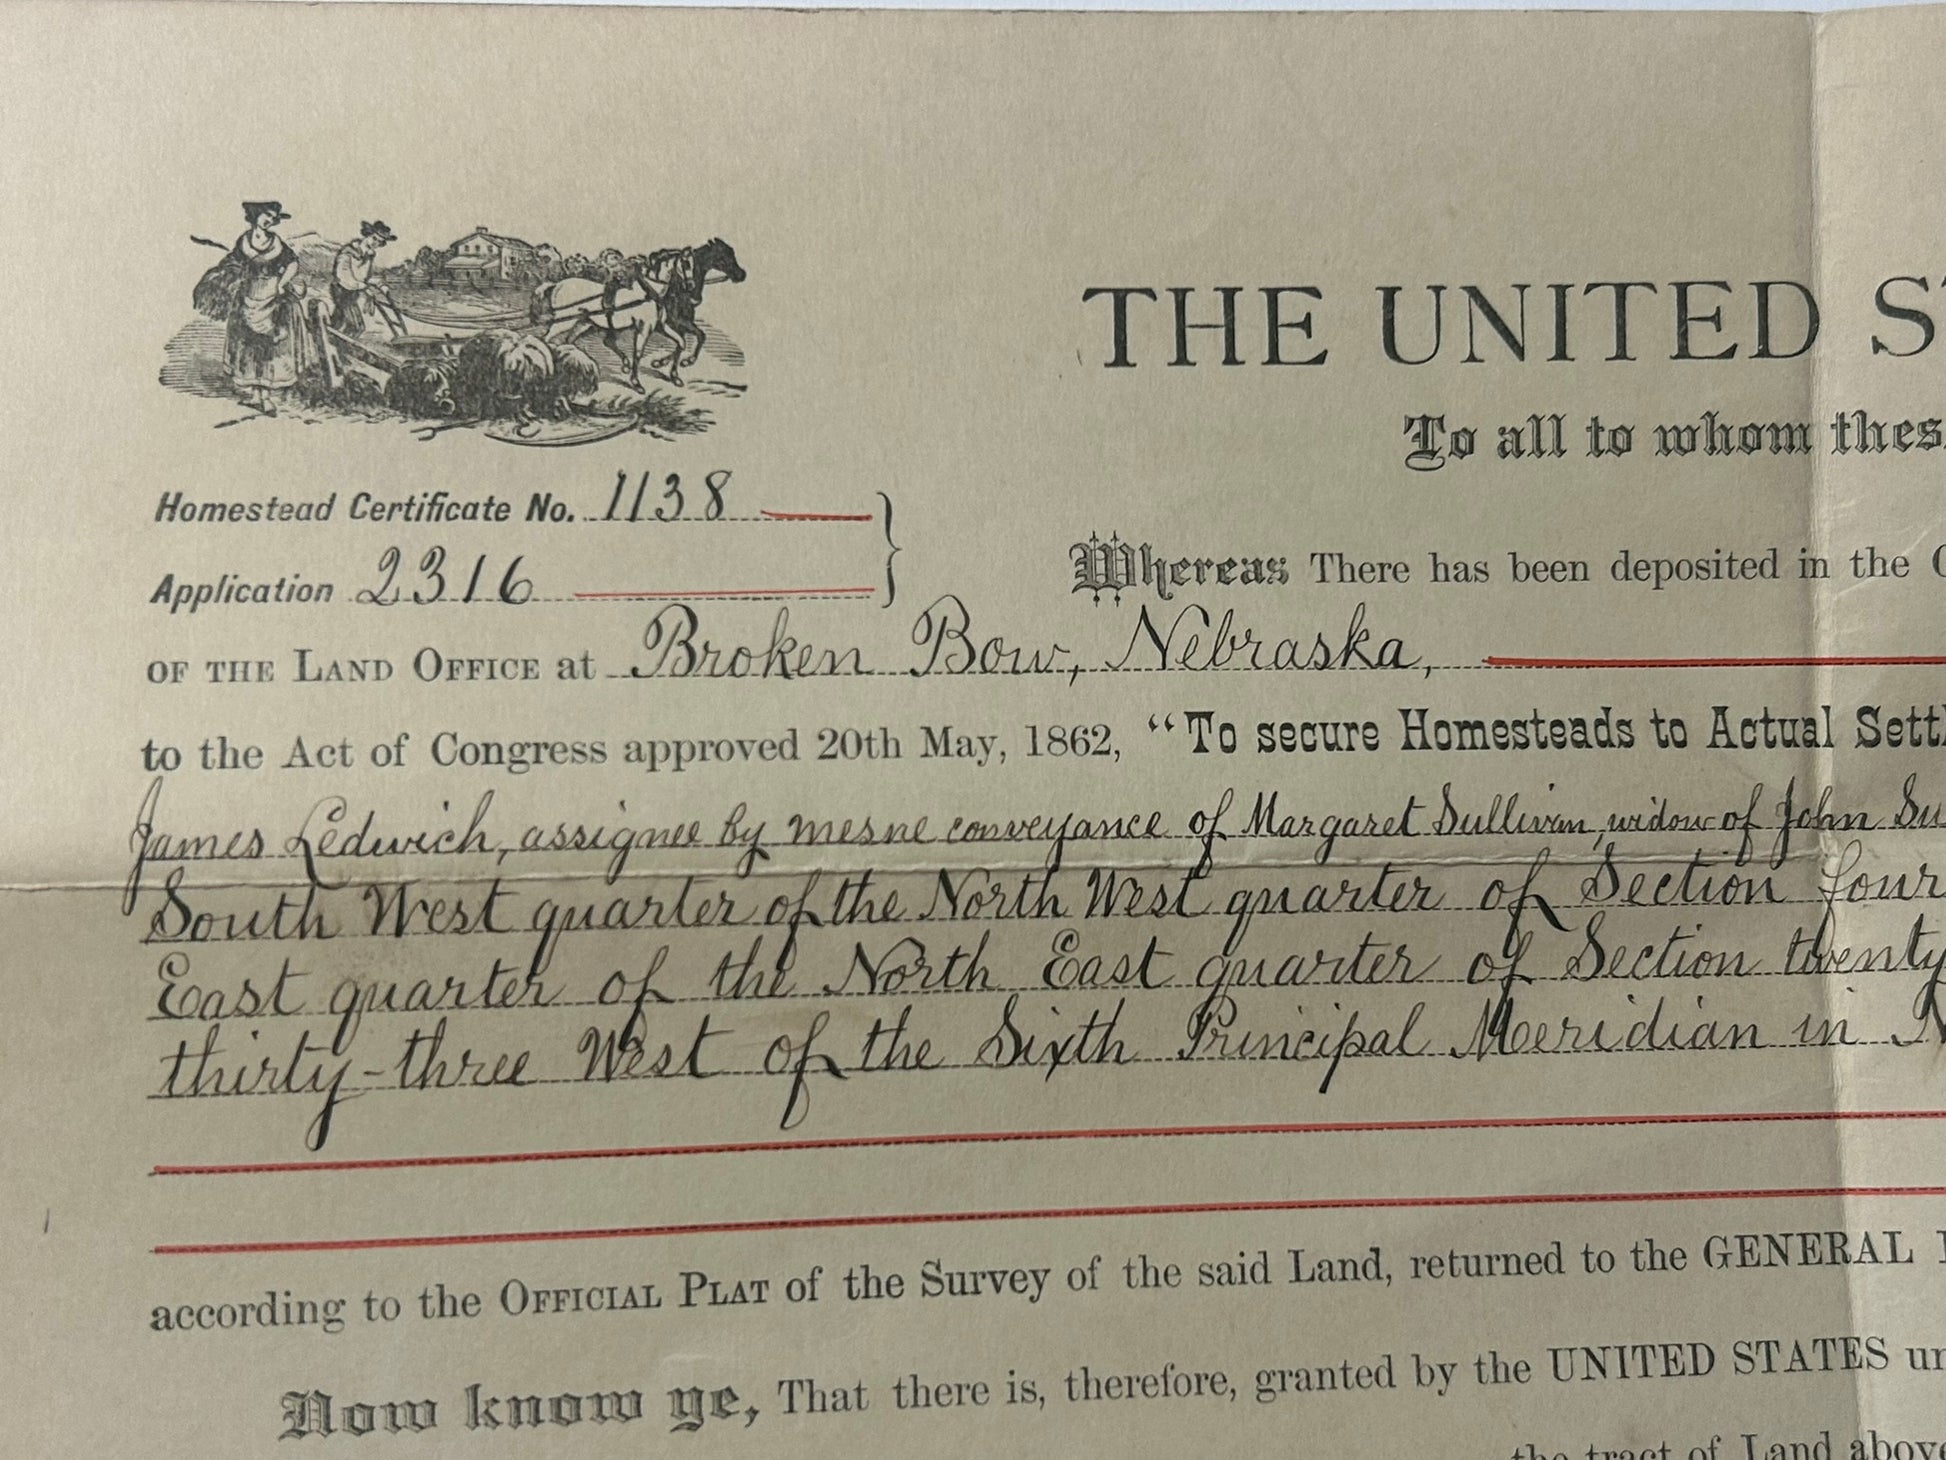 THE UNITED
To all to whom
Homestead Certificate No. 1138
Application 2316
Whereas There has been deposited in the
OF THE LAND OFFICE at Broken Bow, Nebraska,
to the Act of Congress approved 20th May, 1862, "To secure Homesteads to Actual
James Ledwich, assignee by mesne conveyance of Margaret Sullivan, widow of John
South West quarter of the North West quarter of Section four
East quarter of the North East quarter of Section twenty
thirty-three West of the Sixth Principal Meridian in
according to the OFFICIAL PLAT of the Survey of the said Land, returned to the GENERAL
Now know ye, That there is, therefore, granted by the UNITED STATES
the tract of Land